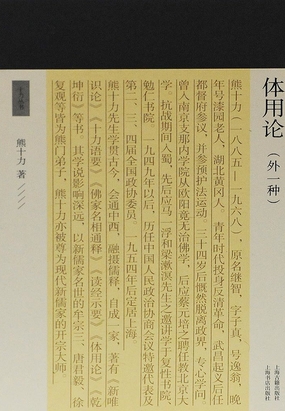 体用论
（外一种）
上海古籍出版社
上海书店出版社
熊十力（一八八五—一九六八），原名继智，字子真，号逸翁，晚
年号漆园老人，湖北黄冈人。青年时代投身反清革命，武昌起义后任
都督府参议，并参预护法运动。三十四岁后慨然脱离政界，专心学问，
曾入南京支那内学院从欧阳竟无治佛学，后应蔡元培之聘任教北京大
学。抗战期间入蜀，先后应马一浮和梁漱溟先生之邀讲学于复性书院、
勉仁书院。一九四九年以后，历任中国人民政治协商会议特邀代表及
第二、三、四届全国政协委员。一九五四年后定居上海。
熊十力先生学贯古今，会通中西，融摄儒释，自成一家，著有《新唯
识论》《十力语要》《佛家名相通释》《读经示要》《体用论》《乾
坤衍》等书，其学说影响深远，以新儒家名世的牟宗三、唐君毅、徐
复观等皆为熊门弟子，熊十力亦被尊为现代新儒家的开宗大师。
十力丛书
熊十力 著